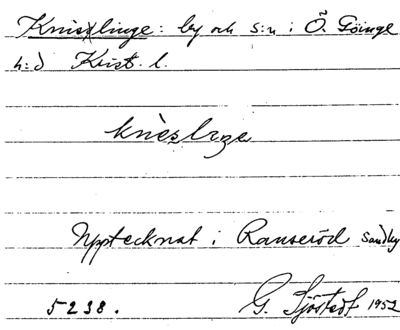 Knislinge: by och s:n i Ö. Göinge
h:d Krist. l.
knèslŋe
Upptecknat i Ranseröd Sandby
5238. G. Sjöstedt 1952